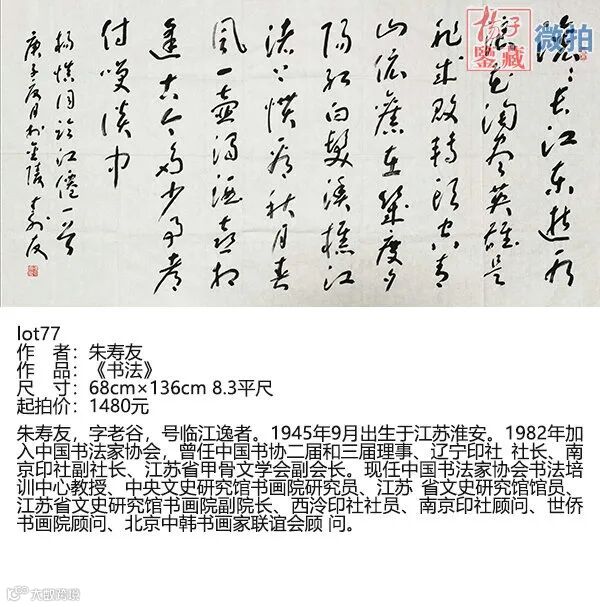 滚滚長江東逝水
浪花淘盡英雄是
非成敗轉頭空青
山依舊在幾度夕
陽紅白髮漁樵江
渚上慣看秋月春
風一壺濁酒喜相
逢古今多少事都
付笑談中
楊慎词臨江僊一首
庚子夏月於金陵 寿友
杨子
鉴藏
微拍
lot77
作 者：朱寿友
作 品：《书法》
尺 寸：68cm×136cm 8.3平尺
起拍价：1480元
朱寿友，字老谷，号临江逸者。1945年9月出生于江苏淮安。1982年加
入中国书法家协会，曾任中国书协二届和三届理事、辽宁印社 社长、南
京印社副社长、江苏省甲骨文学会副会长。现任中国书法家协会书法培
训中心教授、中央文史研究馆书画院研究员、江苏 省文史研究馆馆员、
江苏省文史研究馆书画院副院长、西泠印社社员、南京印社顾问、世侨
书画院顾问、北京中韩书画家联谊会顾 问。